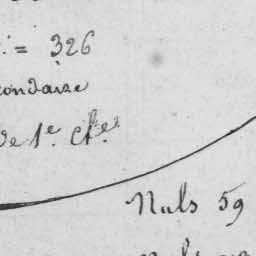 = 326
condaire
de 1e. cl.es
Nuls 59